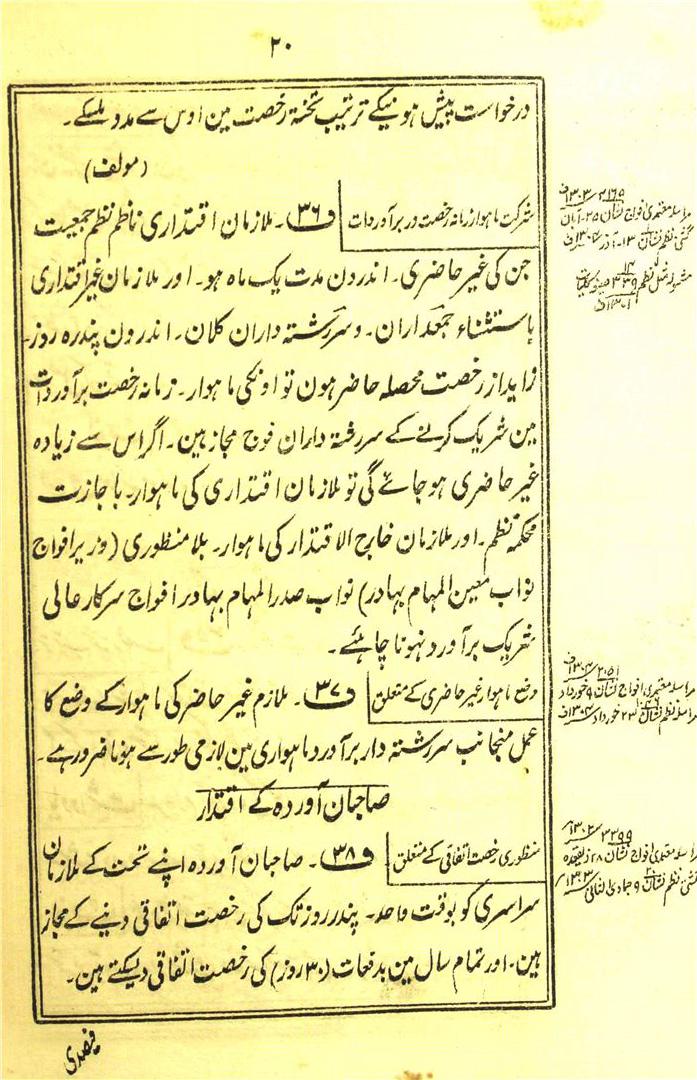 ۲۰
درخواست پیش ہونیکے ترتیب تختۂ رخصت مین اوس سے مدد ملسکے۔
(مولف)
شرکت ماہوار زمانہ رخصت در برآوردات
ف۳۶۔ ملازمان اقتداری ناظم نظم جمعیت
جن کی غیر حاضری۔ اندرون مدت یک ماہ ہو۔ اور ملازمان غیر اقتداری
باستثناء جمعداران۔ وسررشتہ داران کلان۔ اندرون پندرہ روز۔
زاید از رخصت محصلہ حاضر ہون تو اونکی ماہوار۔ زمانہ رخصت برآوردات
مین شریک کرنے کے سررشتہ داران فوج مجاز ہین۔ اگر اس سے زیادہ
غیر حاضری ہو جائے گی تو ملازمان اقتداری کی ماہوار۔ باجازت
محکمہ نظم۔ اور ملازمان خارج الاقتدار کی ماہوار۔ بلا منظوری (وزیر افواج
نواب معین المہام بہادر) نواب صدر المہام بہادر افواج سرکار عالی
شریک برآورد نہونا چاہئے۔
وضع ماہوار غیر حاضری کے متعلق
ف۳۷۔ ملازم غیر حاضر کی ماہوار کے وضع کا
عمل منجانب سررشتہ دار برآورد ماہواری مین لازمی طور سے ہونا ضرور ہے۔
صاحبان آوردہ کے اقتدار
منظوری رخصت اتفاقی کے متعلق
ف۳۸۔ صاحبان آوردہ اپنے تحت کے ملازمان
سراسری کو بوقت واحد۔ پندر روز تک کی رخصت اتفاقی دینے کے مجاز
ہین۔ اور تمام سال مین بدفعات (۳۰ روز) کی رخصت اتفاقی دیسکتے ہین۔
مراسلہ معتمدی افواج نشان ۲۵۔ آبان
گشتی نظم نشان ۱۳۔ آذر
مراسلہ معتمدی افواج نشان ۹ خورداد
مراسلہ نظم نشان ۲۳ خورداد
مراسلہ معتمدی افواج نشان ۲۸ ذیقعدہ
گشتی نظم نشان